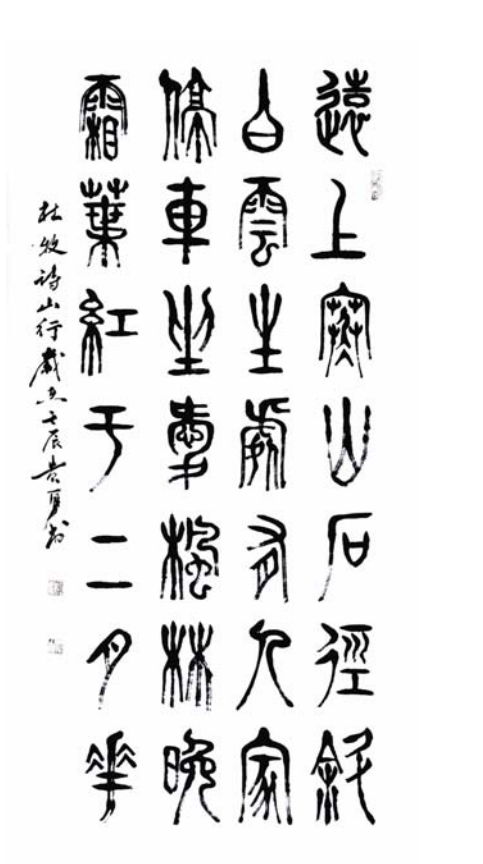 遠上寒山石徑斜
白雲生處有人家
停車坐愛楓林晚
霜葉紅于二月華
杜牧詩山行歲在壬辰